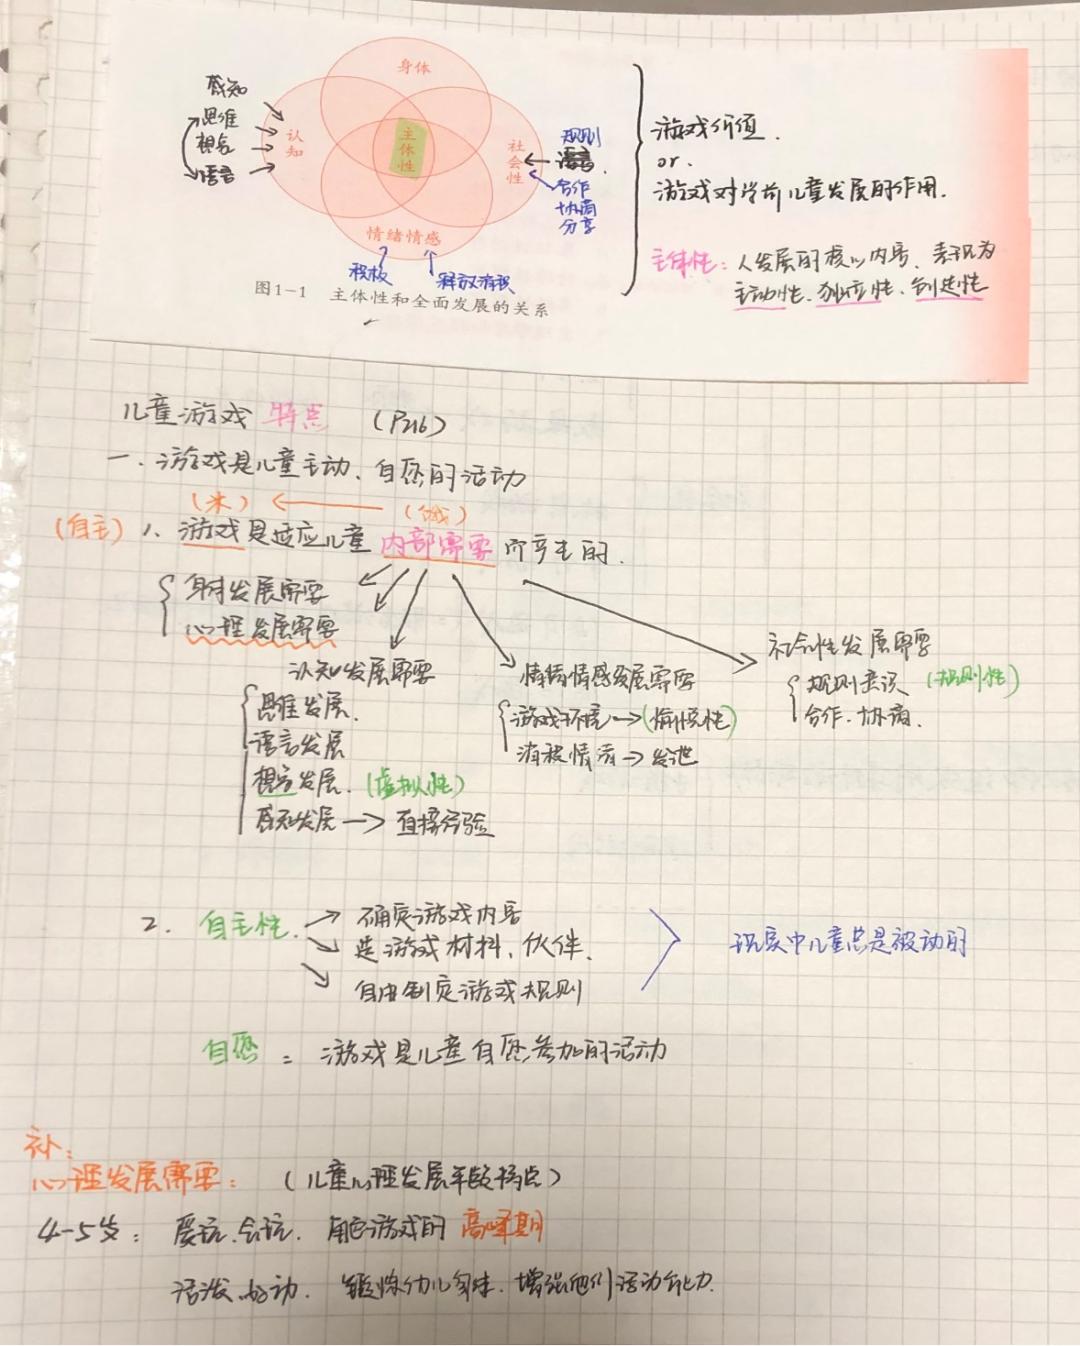 身体
感知
思维
想象
语言
认知
主体性
社会性
规则
语言
合作
协商
分享
情绪情感
积极
释放消积
图1-1 主体性和全面发展的关系
游戏价值.
or.
游戏对学前儿童发展的作用.
主体性: 人发展的核心内容、表现为
主动性、独立性、创造性
儿童游戏 特点 (P216)
一、游戏是儿童主动、自愿的活动
(米) (饿)
(自主) 1、游戏是适应儿童 内部需要 所产生的.
身体发展需要
心理发展需要
认知发展需要
思维发展.
语言发展
想象发展. (虚拟性)
感知发展 → 直接经验
情绪情感发展需要
游戏环境 → (愉悦性)
消极情绪 → 发泄
社会性发展需要
规则意识 (规则性)
合作、协商.
2. 自主性. → 确定游戏内容
选游戏材料、伙伴.
自由制定游戏规则
现实中儿童总是被动的
自愿 : 游戏是儿童自愿参加的活动
补:
心理发展需要: (儿童心理发展年龄特点)
4-5岁: 爱玩、会玩. 角色游戏的 高峰期
活泼、好动. 锻炼幼儿身体、增强他们活动能力.